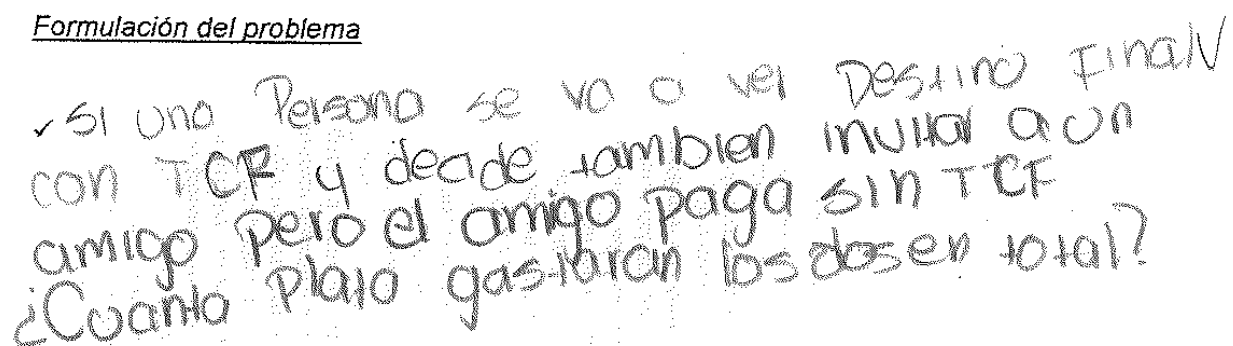 Formulación del problema
✓ SI una Persona se va a ver Destino Final V
con TCF y decide tambien invitar a un
amigo pero el amigo paga sin TCF
¿Cuanta plata gastaran los dos en total?